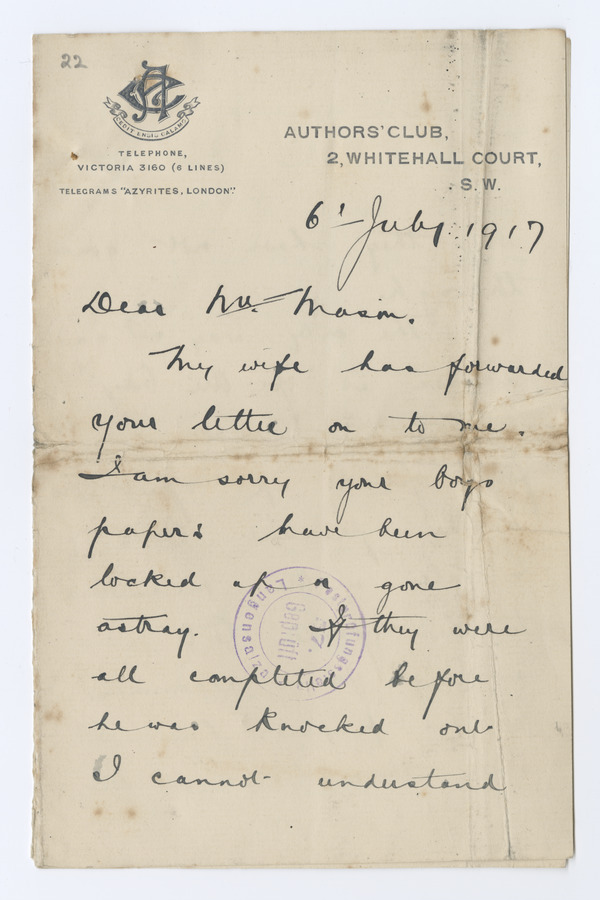 22
CEDIT ENSIS CALAMO
TELEPHONE,
VICTORIA 3160 (6 LINES)
TELEGRAMS "AZYRITES, LONDON."
AUTHORS' CLUB,
2, WHITEHALL COURT,
S. W.
6 July. 1917
Dear Mr. Mason.
My wife has forwarded
your letter on to me.
I am sorry your boys
papers have been
locked up or gone
astray. If they were
all completed before
he was knocked out
I cannot understand
Gepr üft
Langensalza